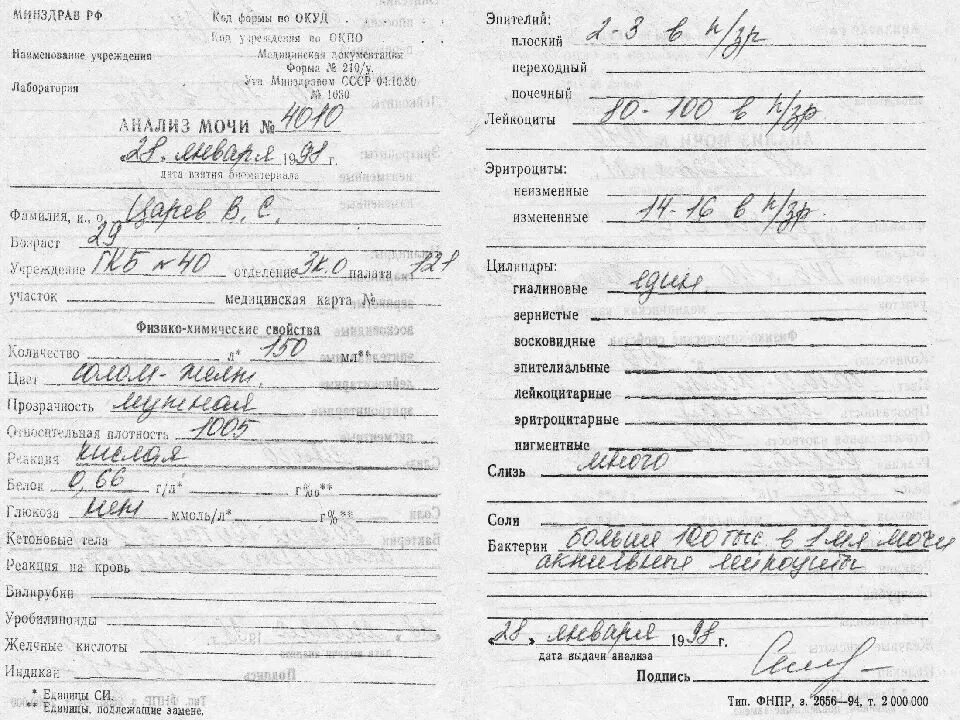 МИНЗДРАВ РФ
Код формы по ОКУД
Код учреждения по ОКПО
Наименование учреждения
Медицинская документация
Форма № 210/у.
Лаборатория
Утв Минздравом СССР 04.10.80
№ 1030
АНАЛИЗ МОЧИ № 4010
28. января 1998 г.
дата взятия биоматериала
Фамилия, и., о. Царев В. С.
Возраст 29
Учреждение ГКБ №40 отделение палата
участок медицинская карта №
Физико-химические свойства
Количество л* 150 мл**
Цвет солом-желт.
Прозрачность мутная
Относительная плотность 1005
Реакция кислая
Белок 0,66 г/л* г%0**
Глюкоза нет ммоль/л* г%**
Кетоновые тела
Реакция на кровь
Билирубин
Уробилиноиды
Желчные кислоты
Индикан
* Единицы СИ.
** Единицы, подлежащие замене.
Эпителий:
плоский 2-3 в п/зр
переходный
почечный
Лейкоциты 80-100 в п/зр
Эритроциты:
неизменные
измененные 14-16 в п/зр.
Цилиндры:
гиалиновые един
зернистые
восковидные
эпителиальные
лейкоцитарные
эритроцитарные
пигментные
Слизь много
Соли
Бактерии больше 100 тыс. в 1 мл мочи
активные
28. января 1998 г.
дата выдачи анализа
Подпись
Тип. ФНПР, з. 2656—94, т. 2 000 000